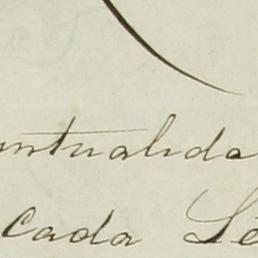 untualida
cada Se